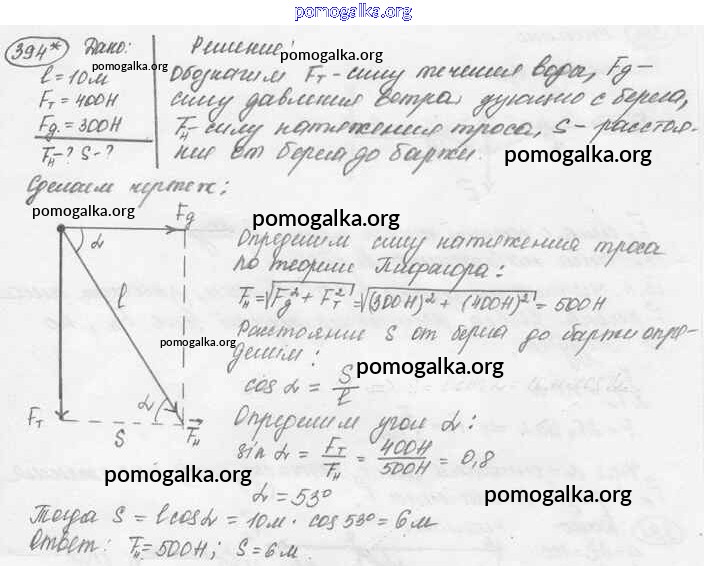 pomogalka.org
394* Дано: Решение:
pomogalka.org
pomogalka.org
l = 10м
Fт = 400Н
Fд = 300Н
Fн - ? S - ?
Обозначим Fт - силу течения воды, Fд -
силу давления ветра дующего с берега,
Fн - силу натяжения троса, S - расстоя-
ние от берега до баржи.
pomogalka.org
Сделаем чертеж:
pomogalka.org
pomogalka.org
Fд
α
l
pomogalka.org
α
Fт
S
Fн
Определим силу натяжения троса
по теореме Пифагора:
Fн = √Fд² + Fт² = √(300Н)² + (400Н)² = 500Н
Расстояние S от берега до баржи опре-
делим:
pomogalka.org
cos α = S/l
Определим угол α:
sin α = Fт/Fн = 400Н/500Н = 0,8
pomogalka.org
α = 53°
pomogalka.org
Тогда S = l cos α = 10м · cos 53° = 6м
Ответ: Fн = 500Н; S = 6м.